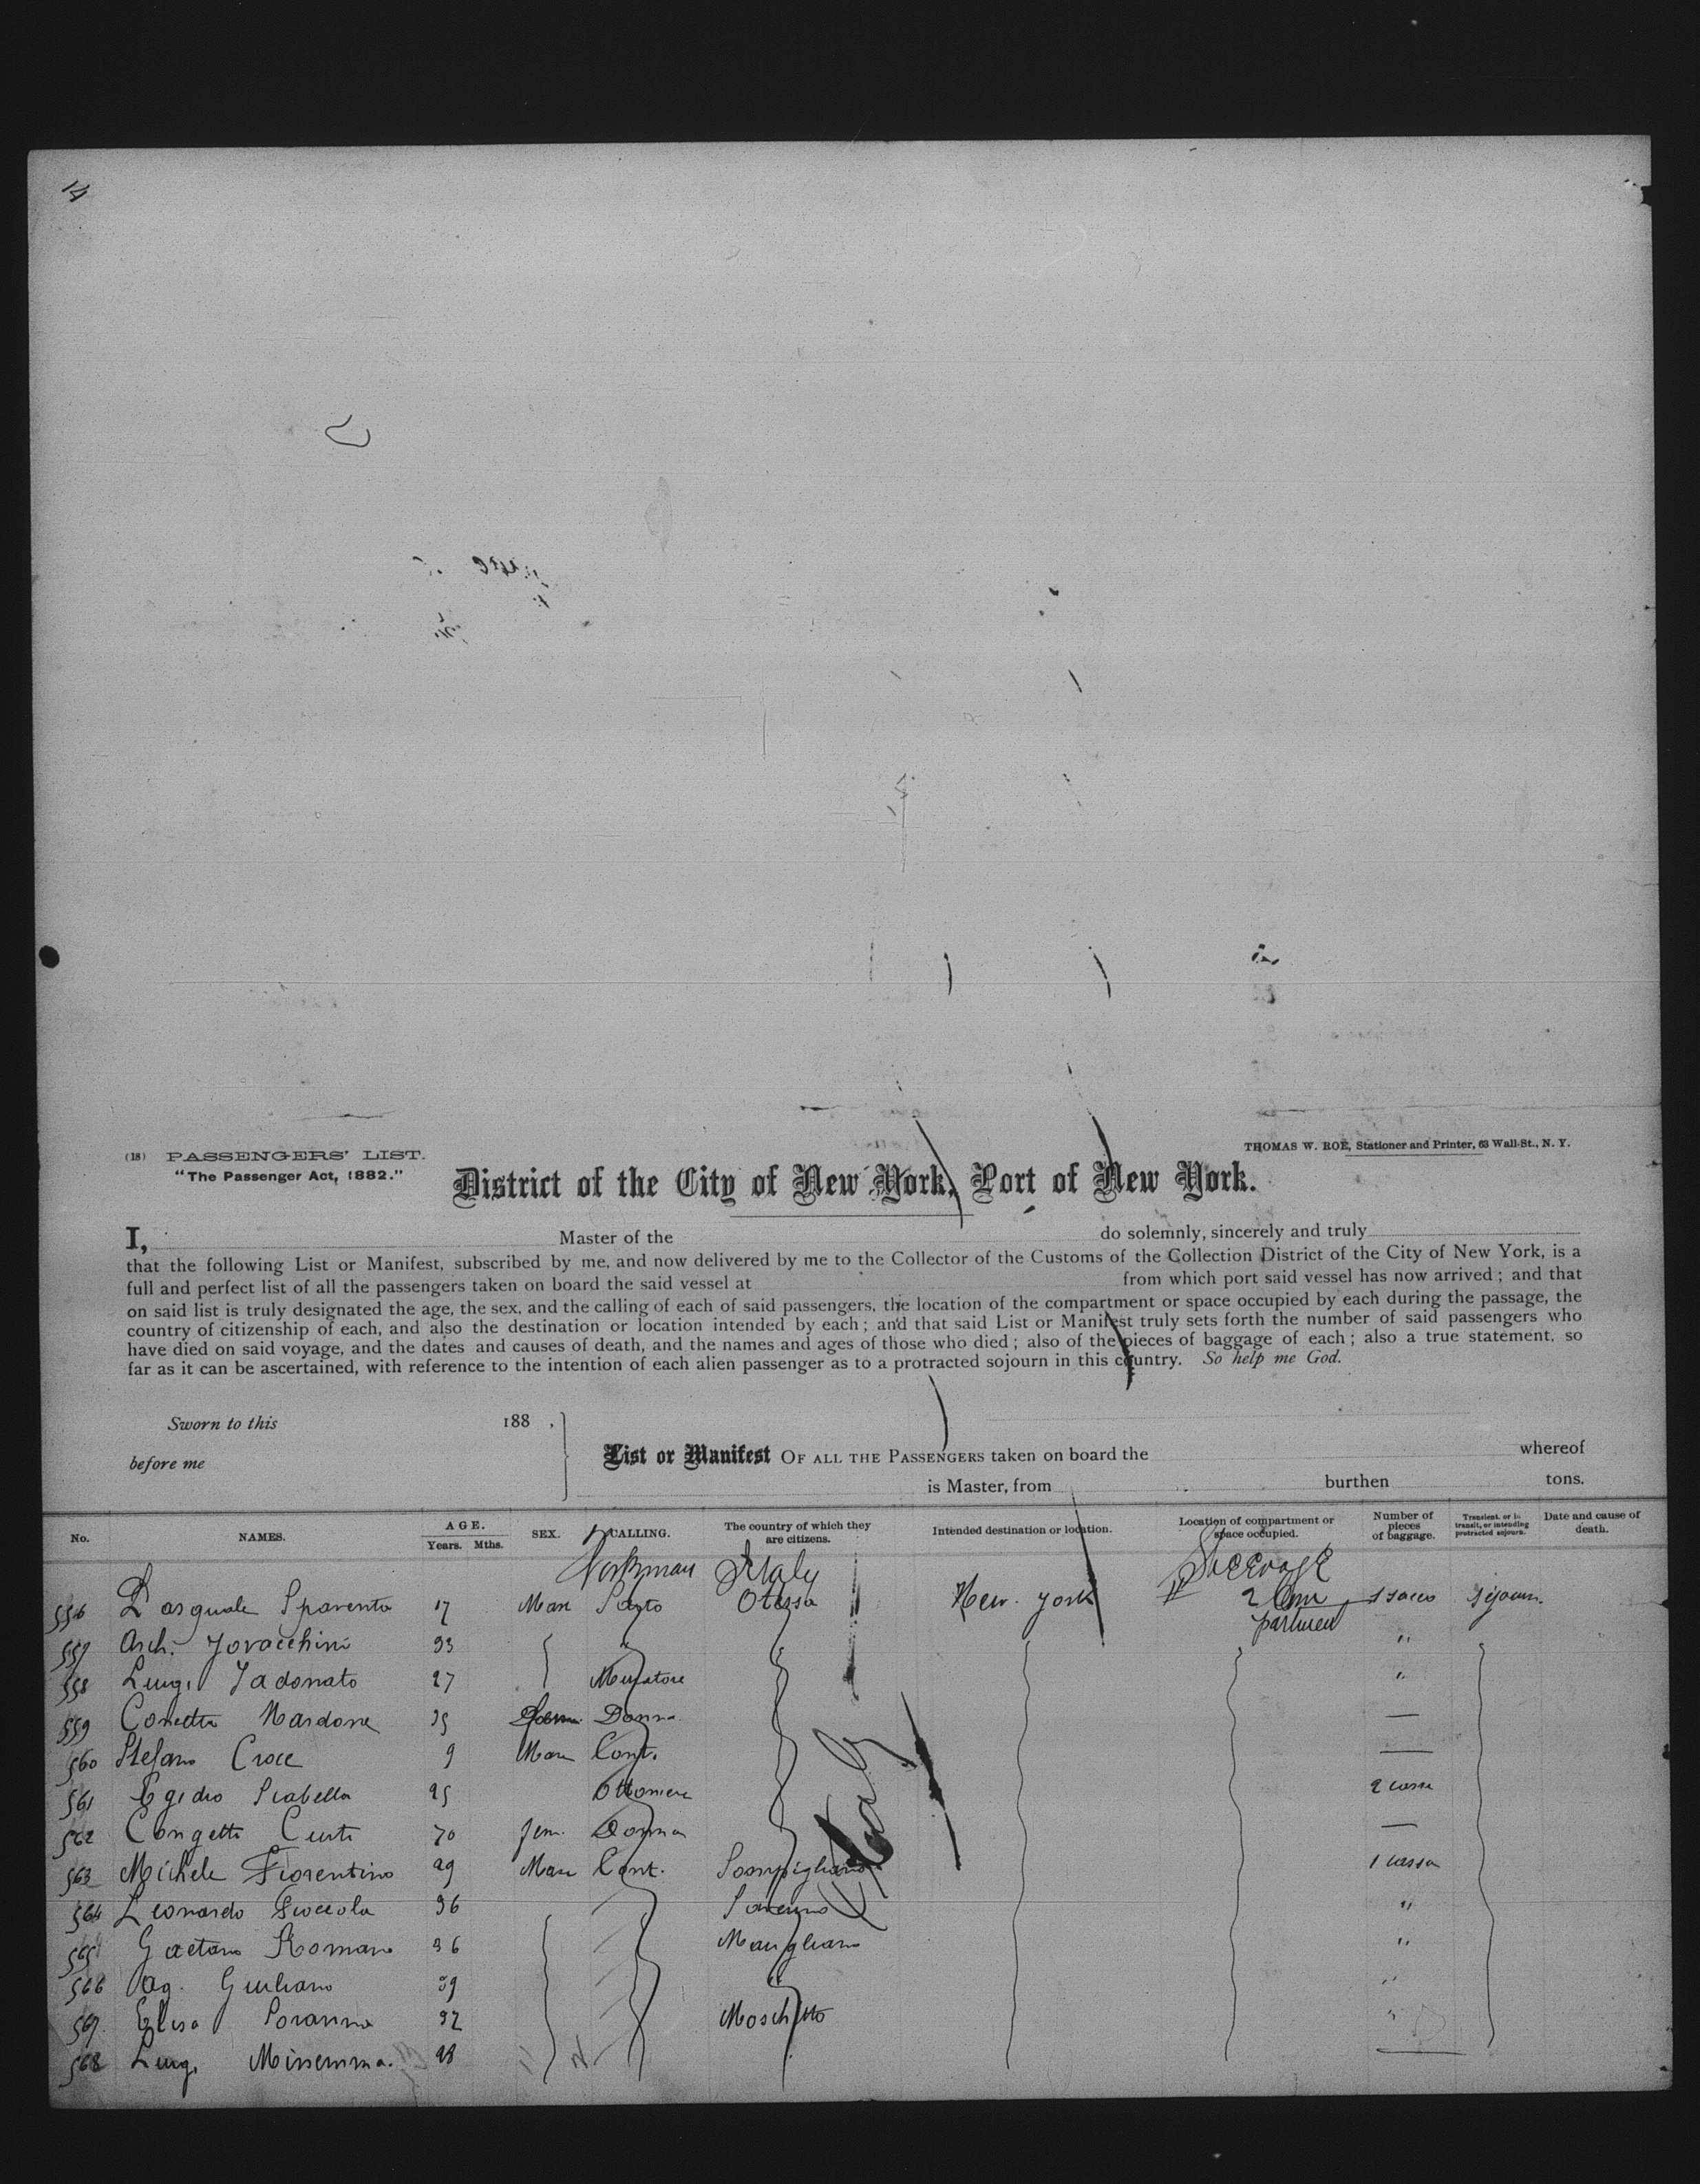 14
(18) PASSENGERS' LIST.
"The Passenger Act, 1882."
THOMAS W. ROE, Stationer and Printer, 63 Wall-St., N. Y.
District of the City of New York, Port of New York.
I, Master of the do solemnly, sincerely and truly
that the following List or Manifest, subscribed by me, and now delivered by me to the Collector of the Customs of the Collection District of the City of New York, is a
full and perfect list of all the passengers taken on board the said vessel at from which port said vessel has now arrived; and that
on said list is truly designated the age, the sex, and the calling of each of said passengers, the location of the compartment or space occupied by each during the passage, the
country of citizenship of each, and also the destination or location intended by each; and that said List or Manifest truly sets forth the number of said passengers who
have died on said voyage, and the dates and causes of death, and the names and ages of those who died; also of the pieces of baggage of each; also a true statement, so
far as it can be ascertained, with reference to the intention of each alien passenger as to a protracted sojourn in this country. So help me God.
Sworn to this 188 .
before me
List or Manifest OF ALL THE PASSENGERS taken on board the whereof
is Master, from burthen tons.
No. NAMES. AGE. Years. Mths. SEX. CALLING. The country of which they are citizens. Intended destination or location. Location of compartment or space occupied. Number of pieces of baggage. Transient, or in transit, or intending protracted sojourn. Date and cause of death.
Workman Italy Steerage
556 Pasquale Spavento 17 Man Sarto New York 2 Com 1 sacco
partment
557 33 "
558 Luigi 27 Muratore "
559 Nardone 35 Donna —
560 Stefano Croce 9 Man Cont. —
561 Egidio 25 2 casse
562 Curti 70 fem. Donna —
563 Michele Fiorentino 29 Man Cont. 1 cassa
564 Leonardo 36 "
565 Gaetano Romano 36 "
566 Ag. Giuliano 39 "
567 Elisa 32 "
568 Luigi 28
Italy